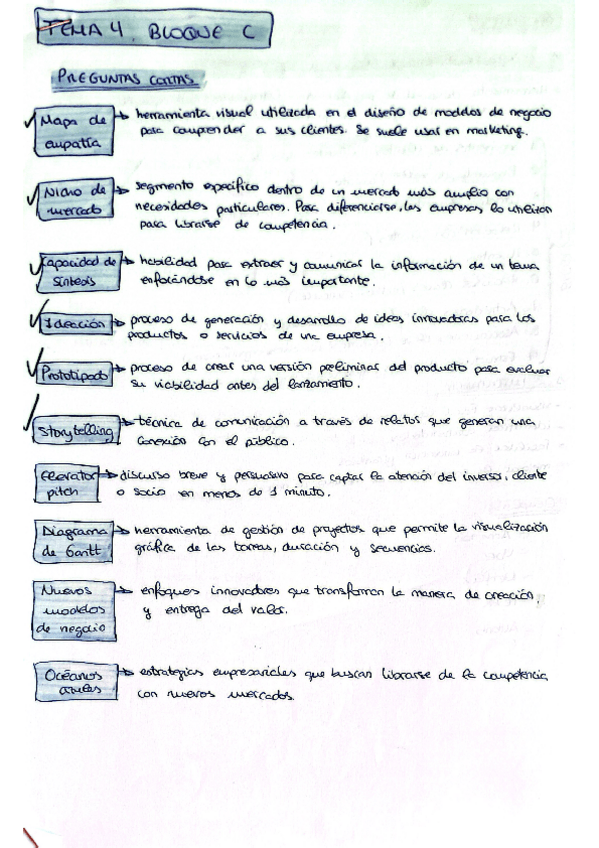 TEMA 4. BLOQUE C
PREGUNTAS CORTAS
Mapa de empatía → herramienta visual utilizada en el diseño de modelos de negocio
para comprender a sus clientes. Se suele usar en marketing.
Nicho de mercado → segmento específico dentro de un mercado más amplio con
necesidades particulares. Para diferenciarse, las empresas lo utilizan
para librarse de competencia.
Capacidad de síntesis → habilidad para extraer y comunicar la información de un tema
enfocándose en lo más importante.
Ideación → proceso de generación y desarrollo de ideas innovadoras para los
productos o servicios de una empresa.
Prototipado → proceso de crear una versión preliminar del producto para evaluar
su viabilidad antes del lanzamiento.
Storytelling → técnica de comunicación a través de relatos que generan una
conexión con el público.
Elevator pitch → discurso breve y persuasivo para captar la atención del inversor, cliente
o socio en menos de 1 minuto.
Diagrama de Gantt → herramienta de gestión de proyectos que permite la visualización
gráfica de las tareas, duración y secuencias.
Nuevos modelos de negocio → enfoques innovadores que transforman la manera de creación
y entrega del valor.
Océanos azules → estrategias empresariales que buscan librarse de la competencia
con nuevos mercados.